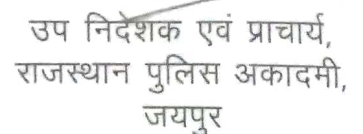 उप निदेशक एवं प्राचार्य,
राजस्थान पुलिस अकादमी,
जयपुर